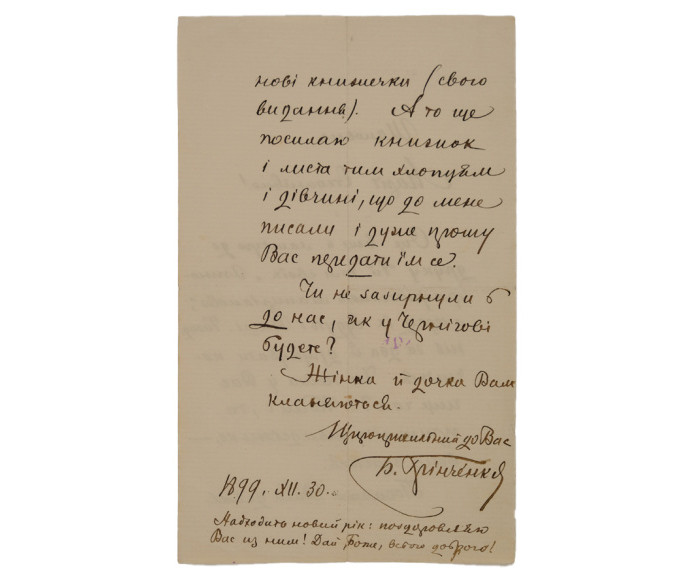 нові книжечки (свого
видання). А то ще
посилаю книжок
і листа тим хлопцям
і дівчині, що до мене
писали і дуже прошу
Вас передати їм се.
Чи не зазирнули б
до нас, як у Чернігові
будете?
Жінка й дочка Вам
кланяються.
Щироприхильний до Вас
Б. Грінченко
1899. XII. 30.
Надходить новий рік: поздоровляю
Вас из ним! Дай Боже, всього доброго!